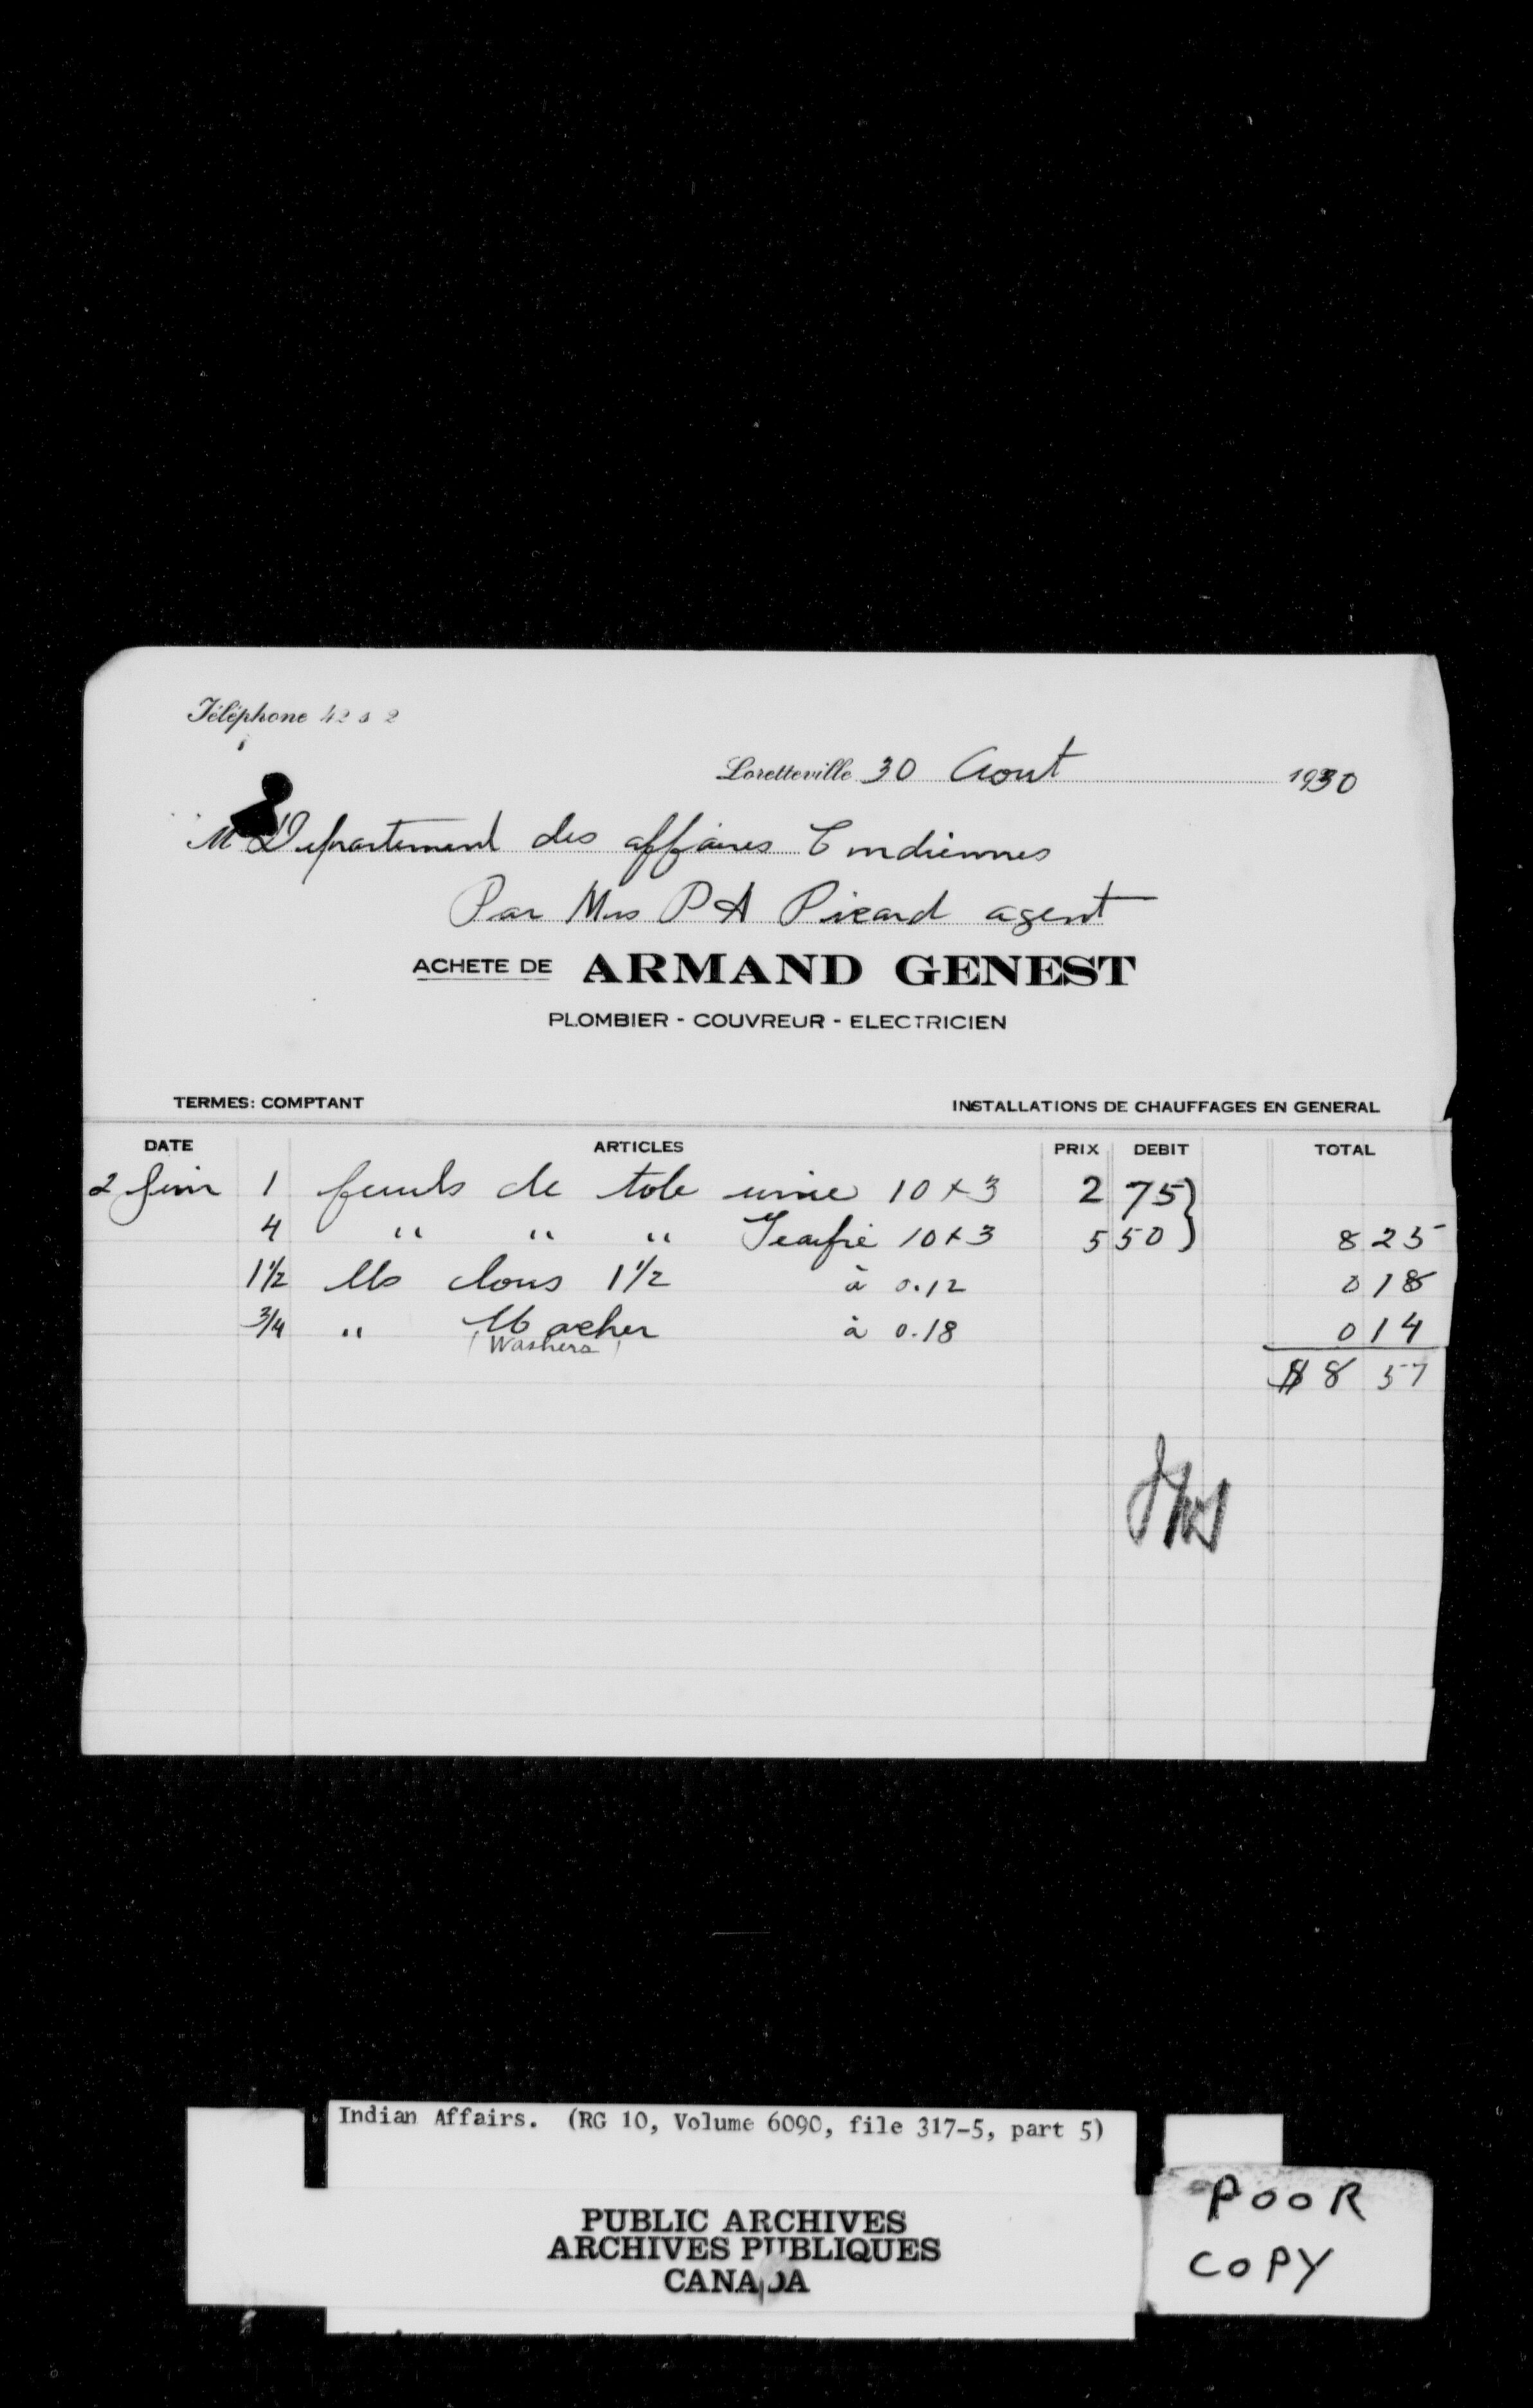 Téléphone 42 s 2
Loretteville 30 Aout 1930
M Departement des affaires Indiennes
Par Mrs P A Picard agent
ACHETE DE ARMAND GENEST
PLOMBIER - COUVREUR - ELECTRICIEN
TERMES: COMPTANT INSTALLATIONS DE CHAUFFAGES EN GENERAL
DATE ARTICLES PRIX DEBIT TOTAL
2 Juin 1 feuils de tole unie 10 x 3 2 75
4 " " " 10 x 3 5 50 8 25
1 1/2 lbs clous 1 1/2 à 0.12 0 18
3/4 " Wacher à 0.18 0 14
(Washers)
$ 8 57
Indian Affairs. (RG 10, Volume 6090, file 317-5, part 5)
PUBLIC ARCHIVES
ARCHIVES PUBLIQUES
CANADA
POOR
COPY